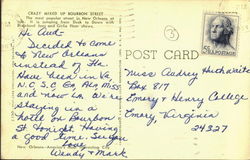 CRAZY MIXED UP BOURBON STREET
The most popular street in New Orleans, of
It is swinging from Dusk to Dawn with
Dixieland Jazz and Girlie Floor shows.
Hi Aud-
Decided to come
to New Orleans
instead of Fla.
Have been in Va,
N.C, S.C, Ga, Ala, Miss
and now La. We're
staying in a
hotel on Bourbon
St tonight. Having
a good time. See you
Love,
Wendy & Mark
3
POST CARD
Miss Audrey
Box 817
Emory & Henry College
Emory, Virginia
24327